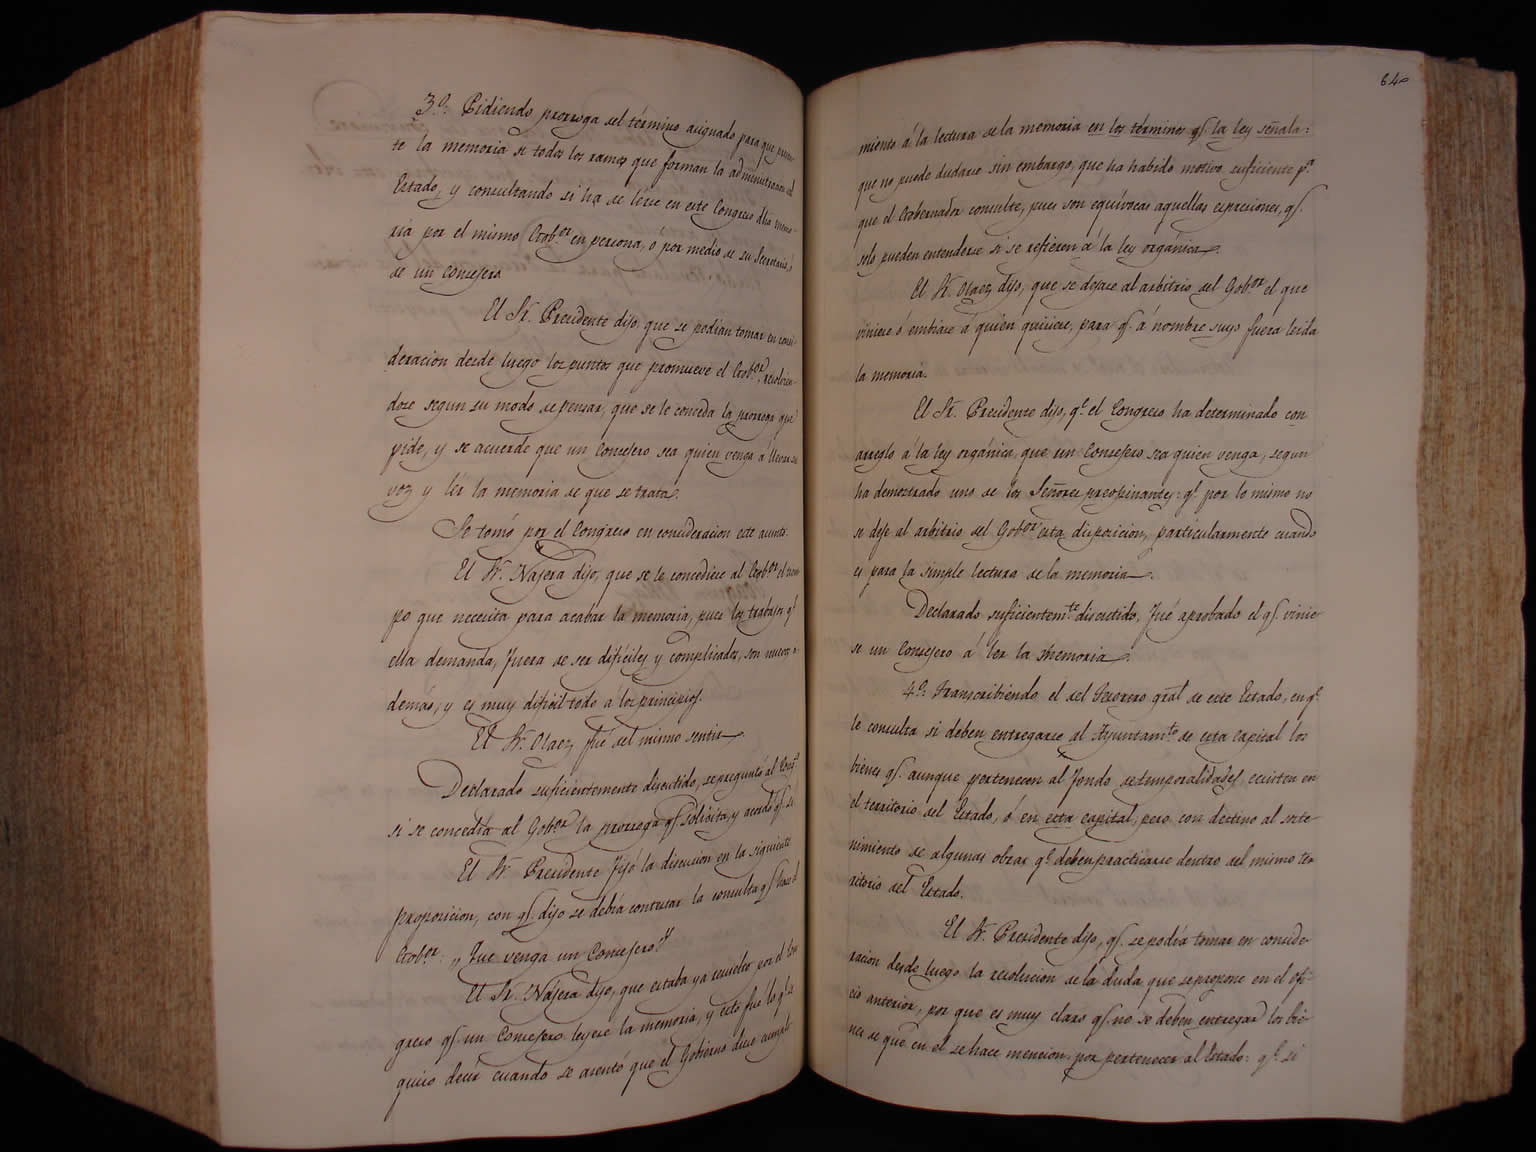 3º. Pidiendo prorroga del término asignado para que presen-
te la memoria de todos los ramos que forman la administracion del
Estado, y consultando si ha de lérse en este Congreso dha memo-
ria por el mismo Gob.or en persona, ó por medio de su Secretario, ó
de un Consejero
El Sr. Presidente dijo, que se podian tomar en consi-
deracion desde luego los puntos que promueve el Gob.or, resolvien-
dose segun su modo de pensar, que se le conceda la prorroga que
pide, y se acuerde que un Consejero sea quien venga á llevar su
voz y lér la memoria de que se trata.
Se tomó por el Congreso en consideracion este asunto.
El Sr. Najera dijo, que se le concediese al Gob.or el tiem-
po que necesita para acabar la memoria, pues los trabajos q.e
ella demanda, fuera de ser dificiles y complicados, son nuevos a-
demás, y es muy dificil todo a los principios.
El Sr. Olaez fué del mismo sentir.
Declarado suficientemente discutido, se preguntó al Cong.o
si se concedía al Gob.or la prorroga q.e solicita, y acordó q.e sí
El Sr. Presidente fijó la discucion en la siguiente
proposicion, con q.e dijo se debía contestar la consulta q.e hace el
Gob.or: „Que venga un Consejero."
El Sr. Nájera dijo, que estaba ya resuelto por el Con-
greso q.e un Consejero leyese la memoria, y esto fué lo q.e se
quiso decir cuando se asentó que el Gobierno diese cumpli-
64
miento á la lectura de la memoria en los términos q.e la ley señala:
que no puede dudarse sin embargo, que ha habido motivo suficiente p.a
que el Gobernador consulte, pues son equívocas aquellas espresiones, q.e
solo pueden entenderse si se refieren á la ley orgánica.
El Sr. Olaez dijo, que se dejase al arbitrio del Gob.or el que
viniese ó embiase á quien quisiere, para q.e á nombre suyo fuera leida
la memoria.
El Sr. Presidente dijo, q.e el Congreso ha determinado con
arreglo á la ley orgánica, que un Consejero sea quien venga, segun
ha demostrado uno de los Señores preopinantes: q.e por lo mismo no
se deje al arbitrio del Gob.or esta disposicion, particularmente cuando
es para la simple lectura de la memoria.
Declarado suficientem.te discutido, fué aprobado el q.e vinie-
se un Consejero á lér la memoria.
4º. Transcribiendo el del Tesorero gral de este Estado, en q.e
le consulta si deben entregarse al Ayuntam.to de esta Capital los
bienes q.e aunque pertenecen al fondo de temporalidades, ecsisten en
el territorio del Estado, ó en esta capital, pero con destino al soste-
nimiento de algunas obras q.e deben practicarse dentro del mismo te-
rritorio del Estado.
El Sr. Presidente dijo, q.e se podía tomar en conside-
racion desde luego la resolucion de la duda que se propone en el ofi-
cio anterior, por que es muy claro q.e no se deben entregar los bie-
nes de que en el se hace mencion, por pertenecer al Estado: q.e si